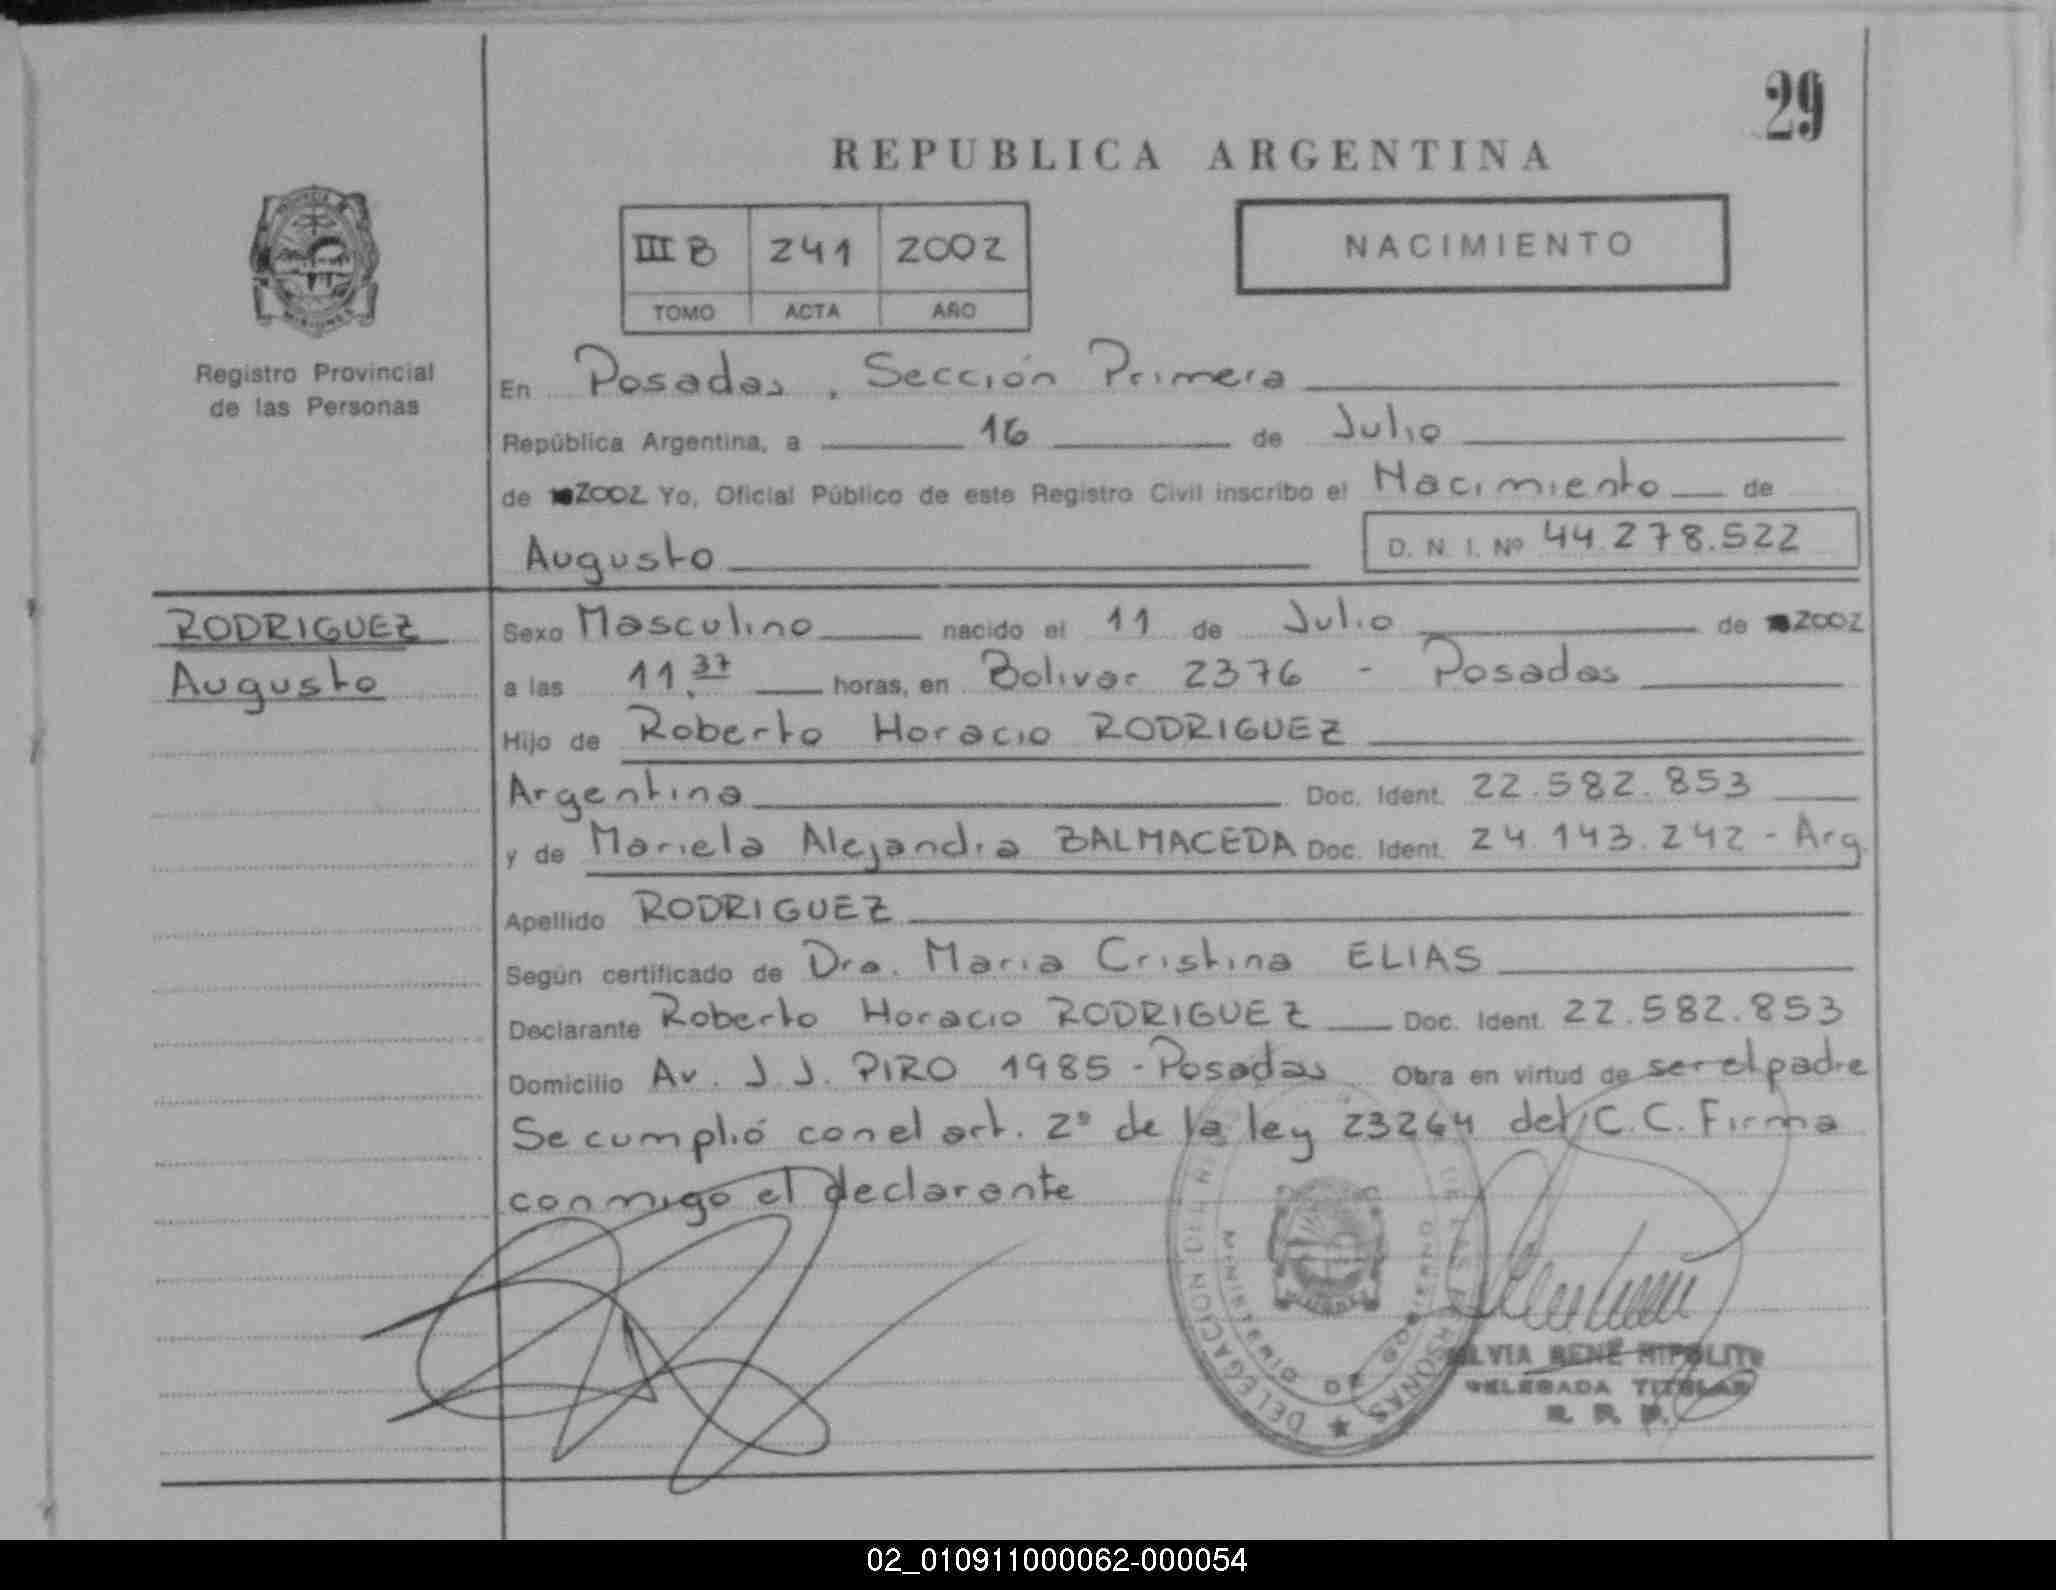 29
REPUBLICA ARGENTINA
III B 241 2002
TOMO ACTA AÑO
NACIMIENTO
Registro Provincial
de las Personas
En Posadas, Sección Primera
República Argentina, a 16 de Julio
de 2002 Yo, Oficial Público de este Registro Civil inscribo el Nacimiento de
Augusto D. N. I. Nº 44.278.522
RODRIGUEZ
Augusto
Sexo Masculino nacido el 11 de Julio de 2002
a las 11.37 horas, en Bolivar 2376 - Posadas
Hijo de Roberto Horacio RODRIGUEZ
Argentina Doc. Ident. 22.582.853
y de Mariela Alejandra BALMACEDA Doc. Ident. 24.143.242 - Arg.
Apellido RODRIGUEZ
Según certificado de Dra. Maria Cristina ELIAS
Declarante Roberto Horacio RODRIGUEZ Doc. Ident. 22.582.853
Domicilio Av. J. J. PIRO 1985 - Posadas Obra en virtud de ser el padre
Se cumplió con el art. 2º de la ley 23264 del C.C. Firma
conmigo el declarante
DE LAS PERSONAS ★ DELEGACION
MINISTERIO DE GOBIERNO
MISIONES
SILVIA RENÉ HIPOLITO
DELEGADA TITULAR
R. P. P.
02_010911000062-000054